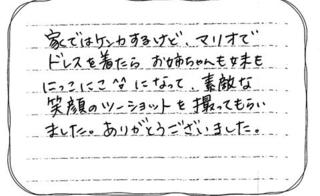 家ではケンカするけど、マリオで
ドレスを着たら お姉ちゃんも妹も
にっこにこ^^になって、素敵な
笑顔のツーショットを撮ってもらい
ました。ありがとうございました。